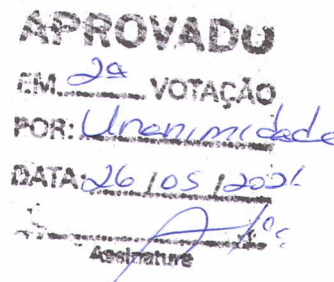 APROVADO
EM 2ª VOTAÇÃO
POR: Unanimidade
DATA: 26/05/2021
Assinatura